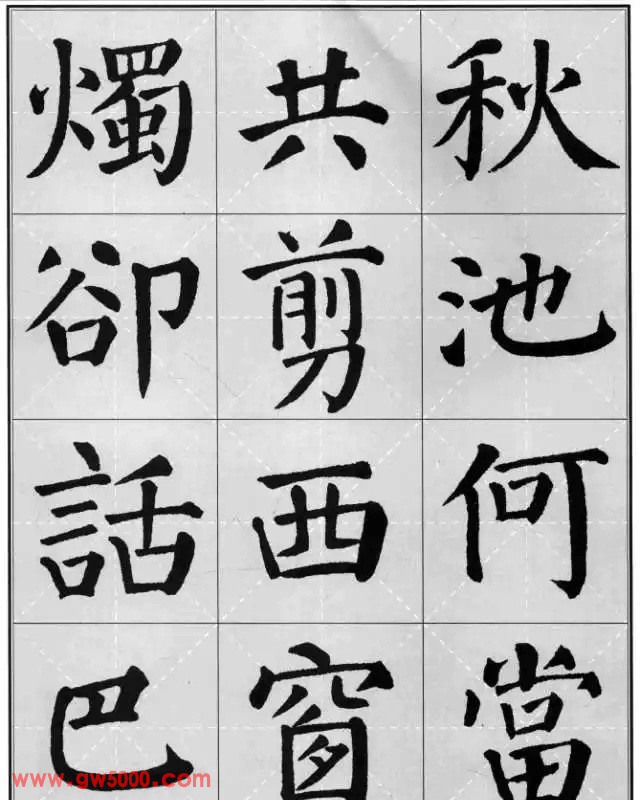 秋池何當
共剪西窗
燭卻話巴
www.gw5000.com